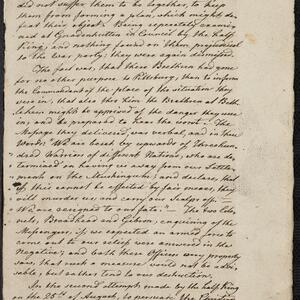 did not suffer them to be together, to keep
them from forming a plan, which might de-
feat their object. Being separately examin-
ed at Gnadenhutten in Council by the Half
King; and nothing found on them prejudicial
to the war party; they were again dismissed.
The fact was, that these Brethren had gone
for no other purpose to Pittsburg, than to inform
the Commandant of the place of the situation they
were in, that also thro' him the Brethren at Beth-
lehem might be apprized of the danger they were
in, and be prepared to hear the worst. The
Message they delivered, was verbal, and in these
Words: We are beset by upwards of three hun-
dred Warriors of different Nations, who are de-
termined on having us away from our Settle-
ments on the Muskingum; and declare, that
if this cannot be effected by fair means, they
will murder us and carry our Scalps off.
We are resigned to our fate. The two Colo-
nels, Broadhead and Gibson, enquiring of the
Messengers, if we expected an armed force to
come out to our relief were answered in the
Negative; and both these Officers very properly
said, that such a measure would not be advi-
sable, but rather tend to our destruction.
In the second attempt made by the half King
on the 25th of August, to persuade the